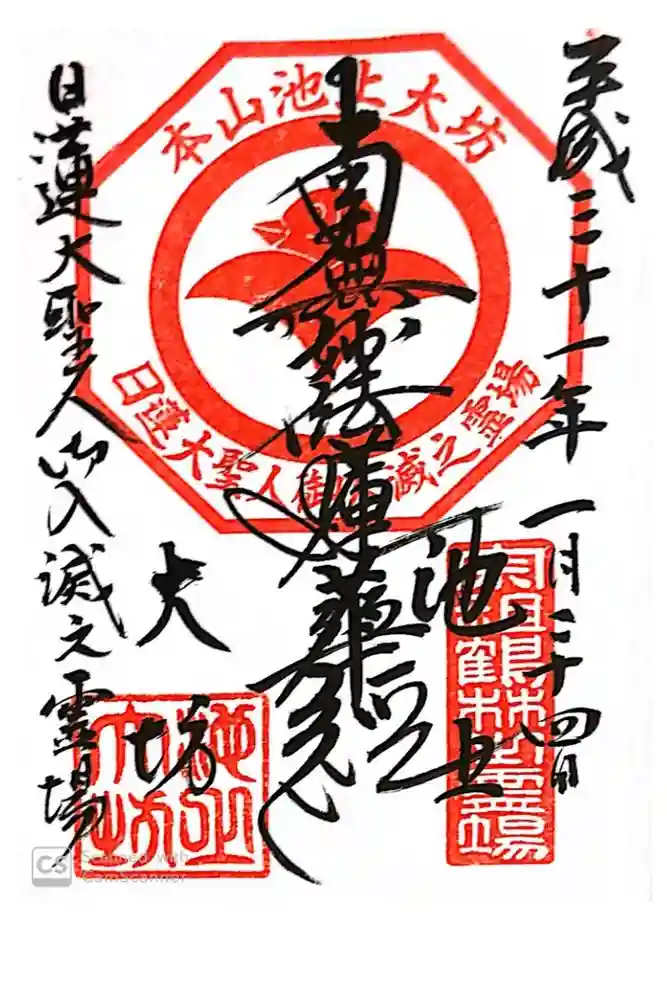 平成三十一年一月二十四日
池上
南無妙法蓮華経
大坊
日蓮大聖人御入滅之霊場
本山池上大坊
日蓮大聖人御入滅之霊場
池上大坊
CS Scanned with
CamScanner